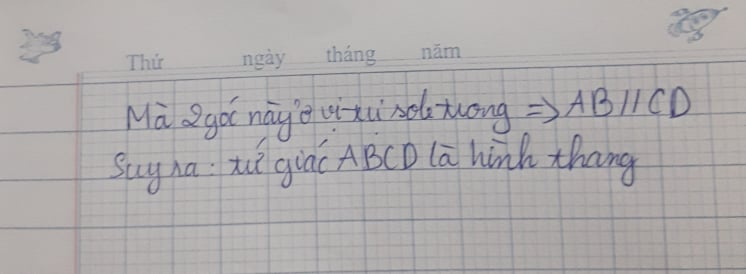 Thứ ngày tháng năm
Mà 2 góc này ở vị trí sole trong => AB//CD
Suy ra: tứ giác ABCD là hình thang